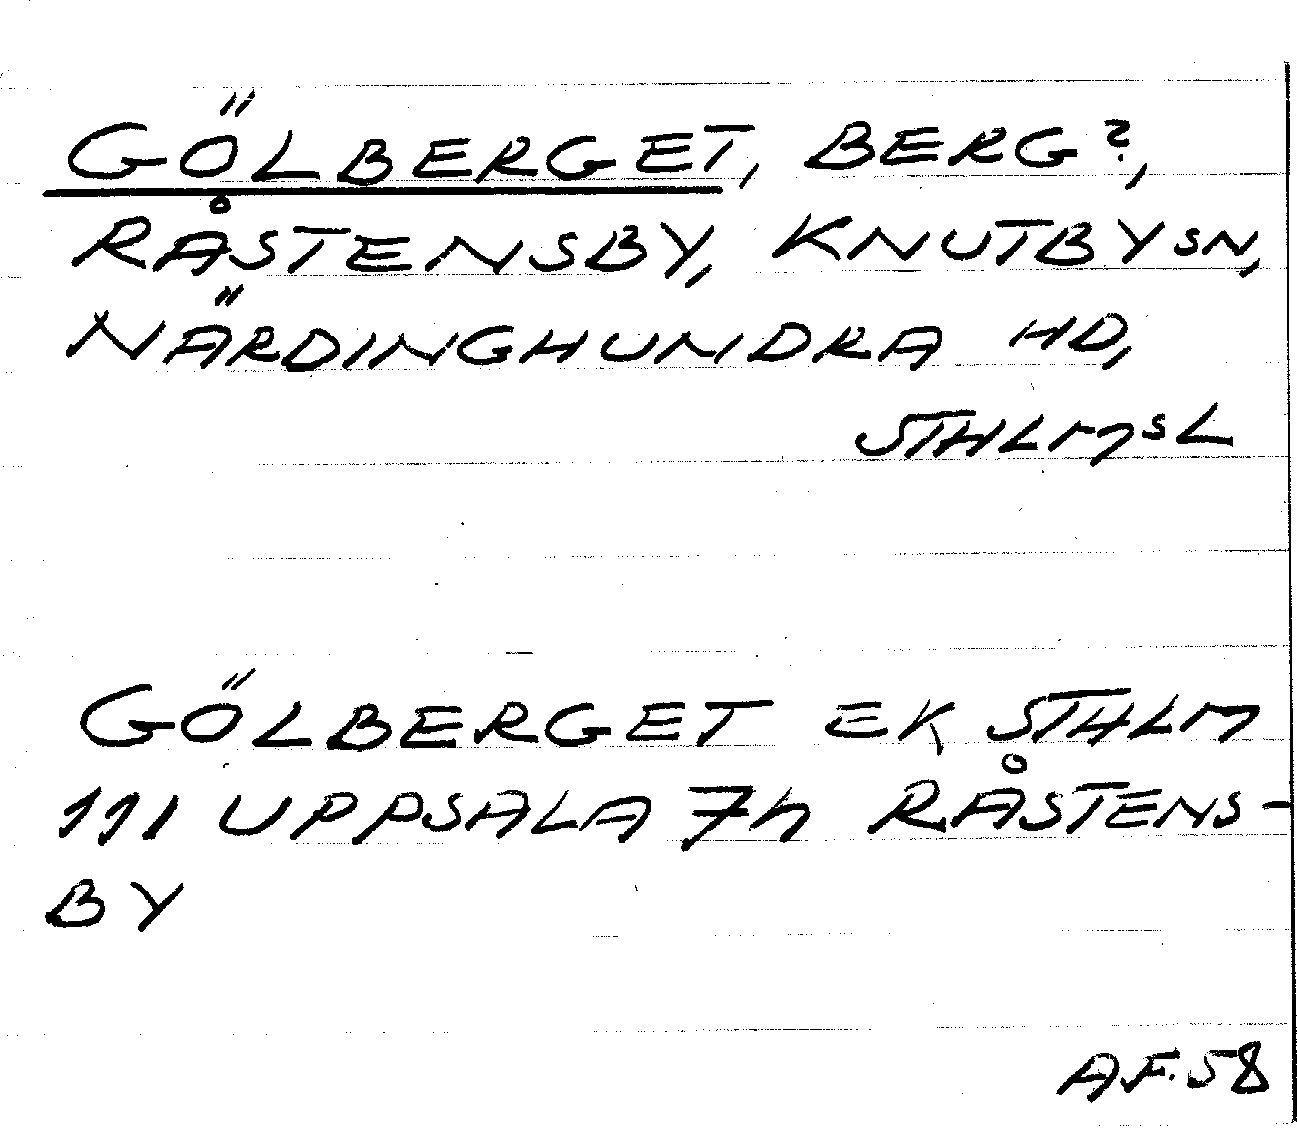 GÖLBERGET, BERG?,
RÅSTENSBY, KNUTBY SN,
NÄRDINGHUNDRA HD,
STHLMS L
GÖLBERGET EK STHLM
111 UPPSALA 7h RÅSTENS-
BY
A.F. 58